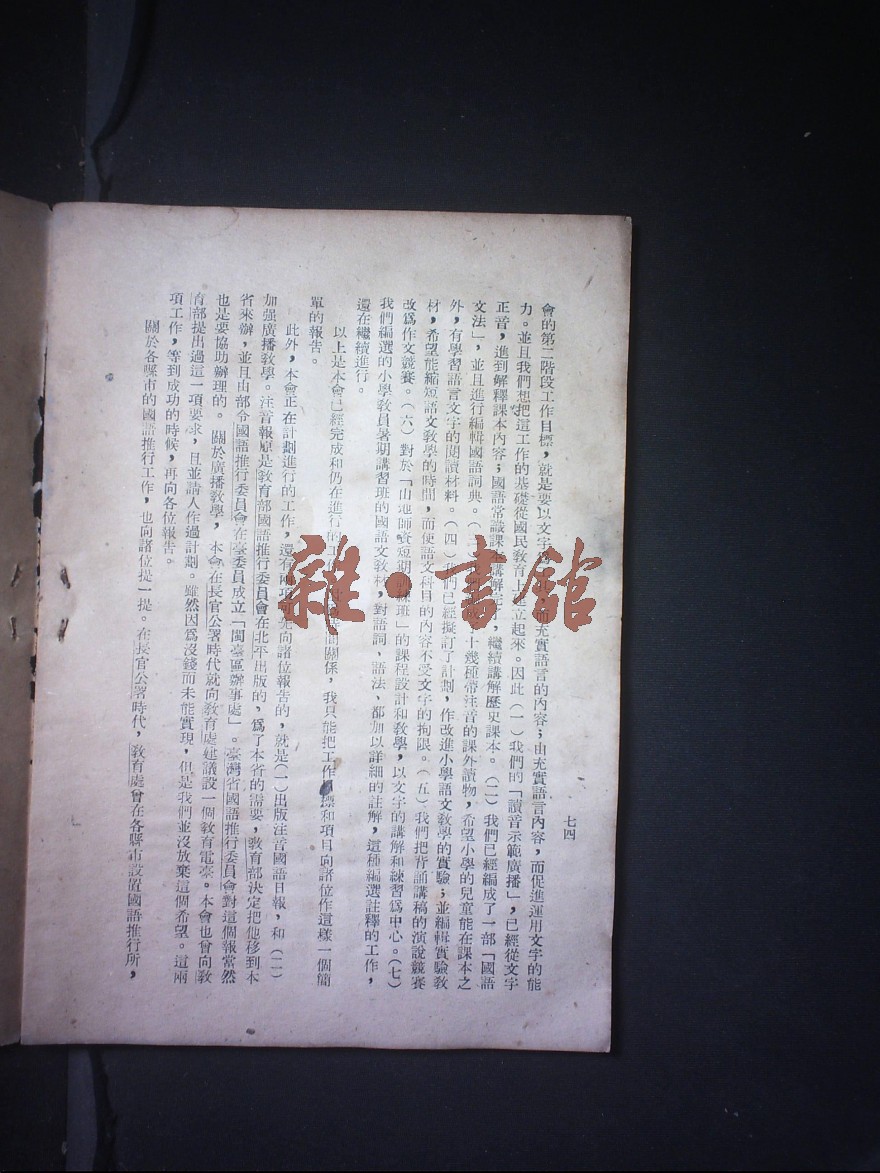 七四
會的第二階段工作目標，就是要以文字 而充實語言的內容；由充實語言內容，而促進運用文字的能
力。並且我們想把這工作的基礎從國民教育上建立起來。因此（一）我們的「讀音示範廣播」，已經從文字
正音，進到解釋課本內容；國語常識課本講解 ，繼續講解歷史課本。（二）我們已經編成了一部「國語
文法」，並且進行編輯國語詞典。（三） 十幾種帶注音的課外讀物，希望小學的兒童能在課本之
外，有學習語言文字的閱讀材料。（四）我們已經擬訂了計劃，作改進小學語文教學的實驗；並編輯實驗教
材，希望能縮短語文教學的時間，而使語文科目的內容不受文字的拘限。（五）我們把背誦講稿的演說競賽
改爲作文競賽。（六）對於「山地師資短期訓練班」的課程設計和教學，以文字的講解和練習爲中心。（七）
我們編選的小學教員暑期講習班的國語文教材，對語詞、語法、都加以詳細的註解，這種編選註釋的工作，
還在繼續進行。
以上是本會已經完成和仍在進行的工作 時間關係，我只能把工作目標和項目向諸位作這樣一個簡
單的報告。
此外，本會正在計劃進行的工作，還有兩項 先向諸位報告的，就是（一）出版注音國語日報，和（二）
加强廣播教學。注音報原是教育部國語推行委員會在北平出版的，爲了本省的需要，教育部決定把他移到本
省來辦，並且由部令國語推行委員會在臺委員成立「閩臺區辦事處」。臺灣省國語推行委員會對這個報當然
也是要協助辦理的。關於廣播教學，本會在長官公署時代就向教育處建議設一個教育電臺。本會也曾向教
育部提出過這一項要求，且並請人作過計劃。雖然因爲沒錢而未能實現，但是我們並沒放棄這個希望。這兩
項工作，等到成功的時候，再向各位報告。
關於各縣市的國語推行工作，也向諸位提一提。在長官公署時代，教育處曾在各縣市設置國語推行所，
雜·書館